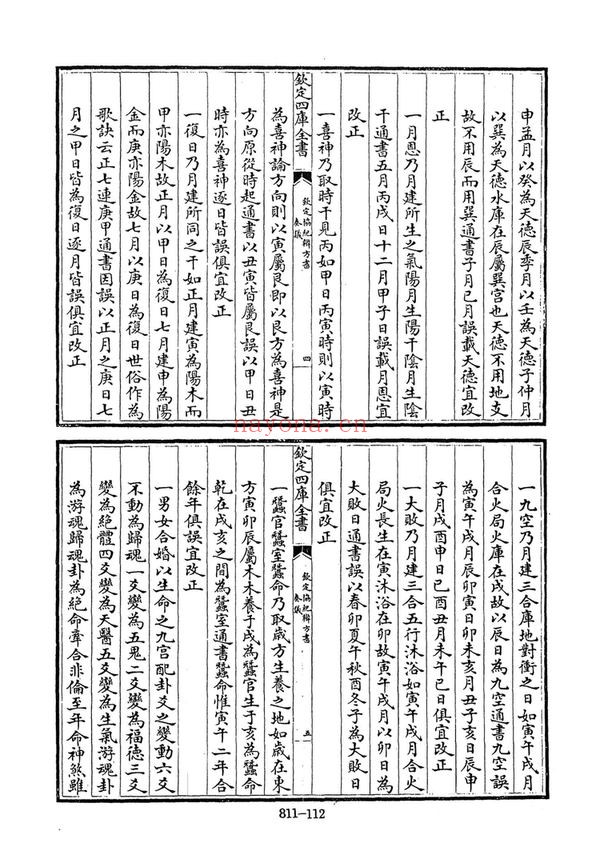 申孟月以癸為天德辰季月以壬為天德子仲月
以巽為天德水庫在辰屬巽宫也天德不用地支
故不用辰而用巽通書子月巳月誤載天德宜改
正
一月恩乃月建所生之氣陽月生陽干陰月生陰
干通書五月丙戌日十二月甲子日誤載月恩宜
改正
一喜神乃取時干見丙如甲日丙寅時則以寅時
欽定四庫全書
欽定協紀辨方書
奏議
四
為喜神論方向則以寅屬艮即以艮方為喜神是
方向原從時起通書以丑寅皆屬艮誤以甲日丑
時亦為喜神逐日皆誤俱宜改正
一復日乃月建所同之干如正月建寅為陽木而
甲亦陽木故正月以甲日為復日七月建申為陽
金而庚亦陽金故七月以庚日為復日世俗作為
歌訣云正七連庚甲通書因誤以正月之庚日七
月之甲日皆為復日逐月皆誤俱宜改正
一九空乃月建三合庫地對衝之日如寅午戌月
合火局火庫在戌故以辰日為九空通書九空誤
為寅午戌月辰寅日卯未亥月丑子亥日辰申
子月戌酉申日巳酉丑月未午巳日俱宜改正
一大敗乃月建三合五行沐浴如寅午戌月合火
局火長生在寅沐浴在卯故寅午戌月以卯日為
大敗日通書誤以春卯夏午秋酉冬子為大敗日
俱宜改正
欽定四庫全書
欽定協紀辨方書
奏議
五
一蠶官蠶室蠶命乃取歲方生養之地如歲在東
方寅卯辰屬木木養于戌為蠶官生于亥為蠶命
乾在戌亥之間為蠶室通書蠶命惟寅午二年合
餘年俱誤宜改正
一男女合婚以生命之九宫配卦爻之變動六爻
不動為歸魂一爻變為五鬼二爻變為福德三爻
變為絶體四爻變為天醫五爻變為生氣游魂卦
為游魂歸魂卦為絶命牽合非倫至年命神煞雖
811-112
nayona.cn